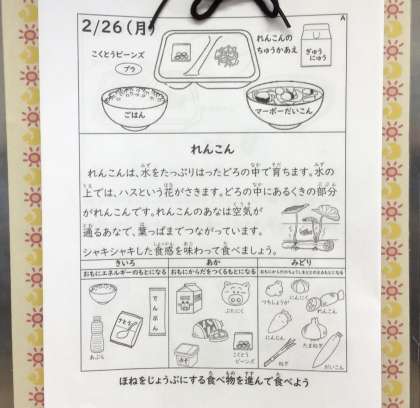 2/26(月)
A
こくとうビーンズ
プラ
れんこんの
ちゅうかあえ
ぎゅう
にゅう
ごはん
マーボーだいこん
れんこん
れんこんは、水をたっぷりはったどろの中で育ちます。水の
上では、ハスという花がさきます。どろの中にあるくきの部分
がれんこんです。れんこんのあなは空気が
通るあなで、葉っぱまでつながっています。
シャキシャキした食感を味わって食べましょう。
きいろ
あか
みどり
おもにエネルギーのもとになる
おもにからだをつくるもとになる
おもにからだのちょうしをととのえるもとになる
あぶら
さとう
でんぷん
ぶたにく
みそ
こくとう
ビーンズ
つちしょうが
にんにく
れんこん
にんじん
たまねぎ
ねぎ
だいこん
ほねをじょうぶにする食べ物を進んで食べよう